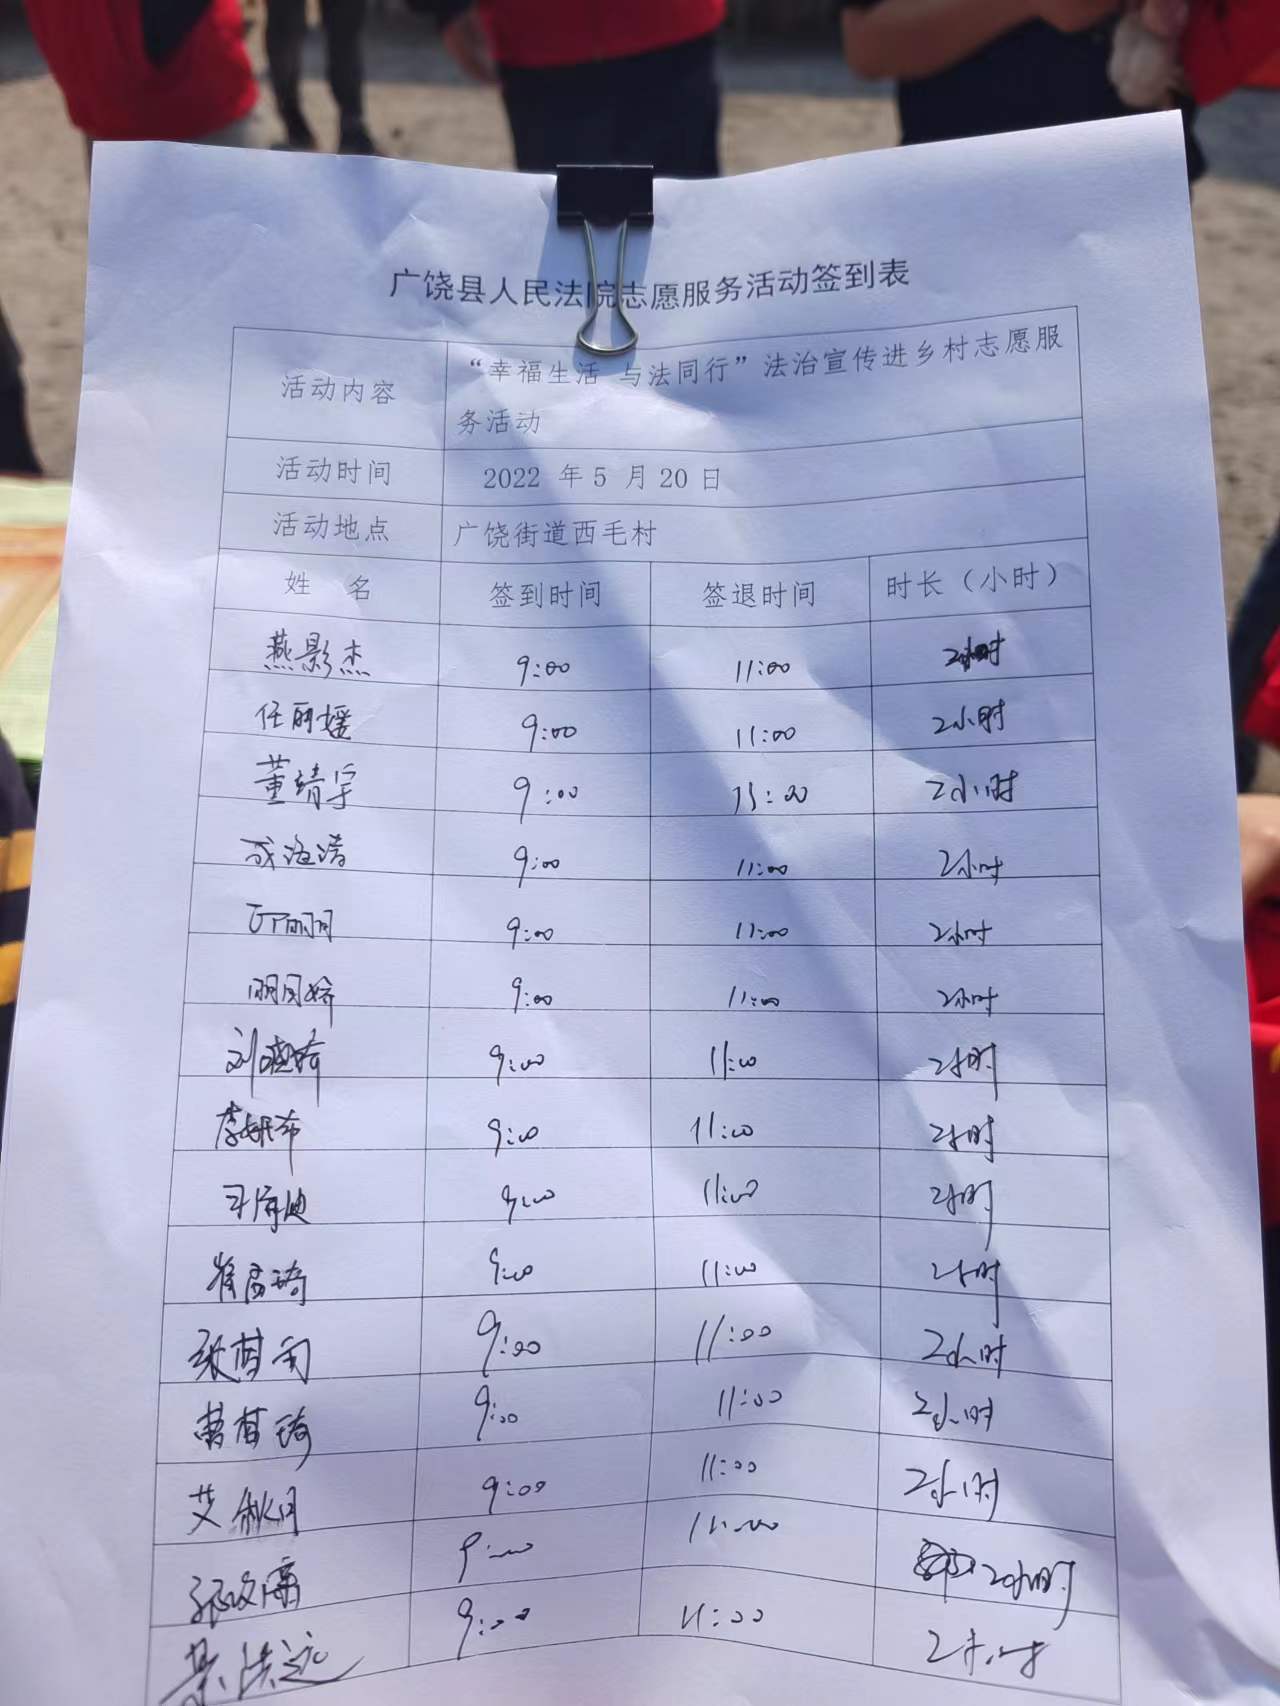 广饶县人民法院志愿服务活动签到表
活动内容 “幸福生活 与法同行”法治宣传进乡村志愿服
务活动
活动时间 2022 年 5 月 20 日
活动地点 广饶街道西毛村
姓 名 签到时间 签退时间 时长（小时）
燕影杰 9:00 11:00 2小时
任丽媛 9:00 11:00 2小时
董靖宇 9:00 11:00 2小时
成海洁 9:00 11:00 2小时
9:00 11:00 2小时
明月娇 9:00 11:00 2小时
刘晓琦 9:00 11:00 2小时
9:00 11:00 2小时
9:00 11:00 2小时
崔富琦 9:00 11:00 2小时
张茜雨 9:00 11:00 2小时
曹茜琦 9:00 11:00 2小时
艾秋月 9:00 11:00 2小时
9:00 11:00 2小时
9:00 11:00 2小时